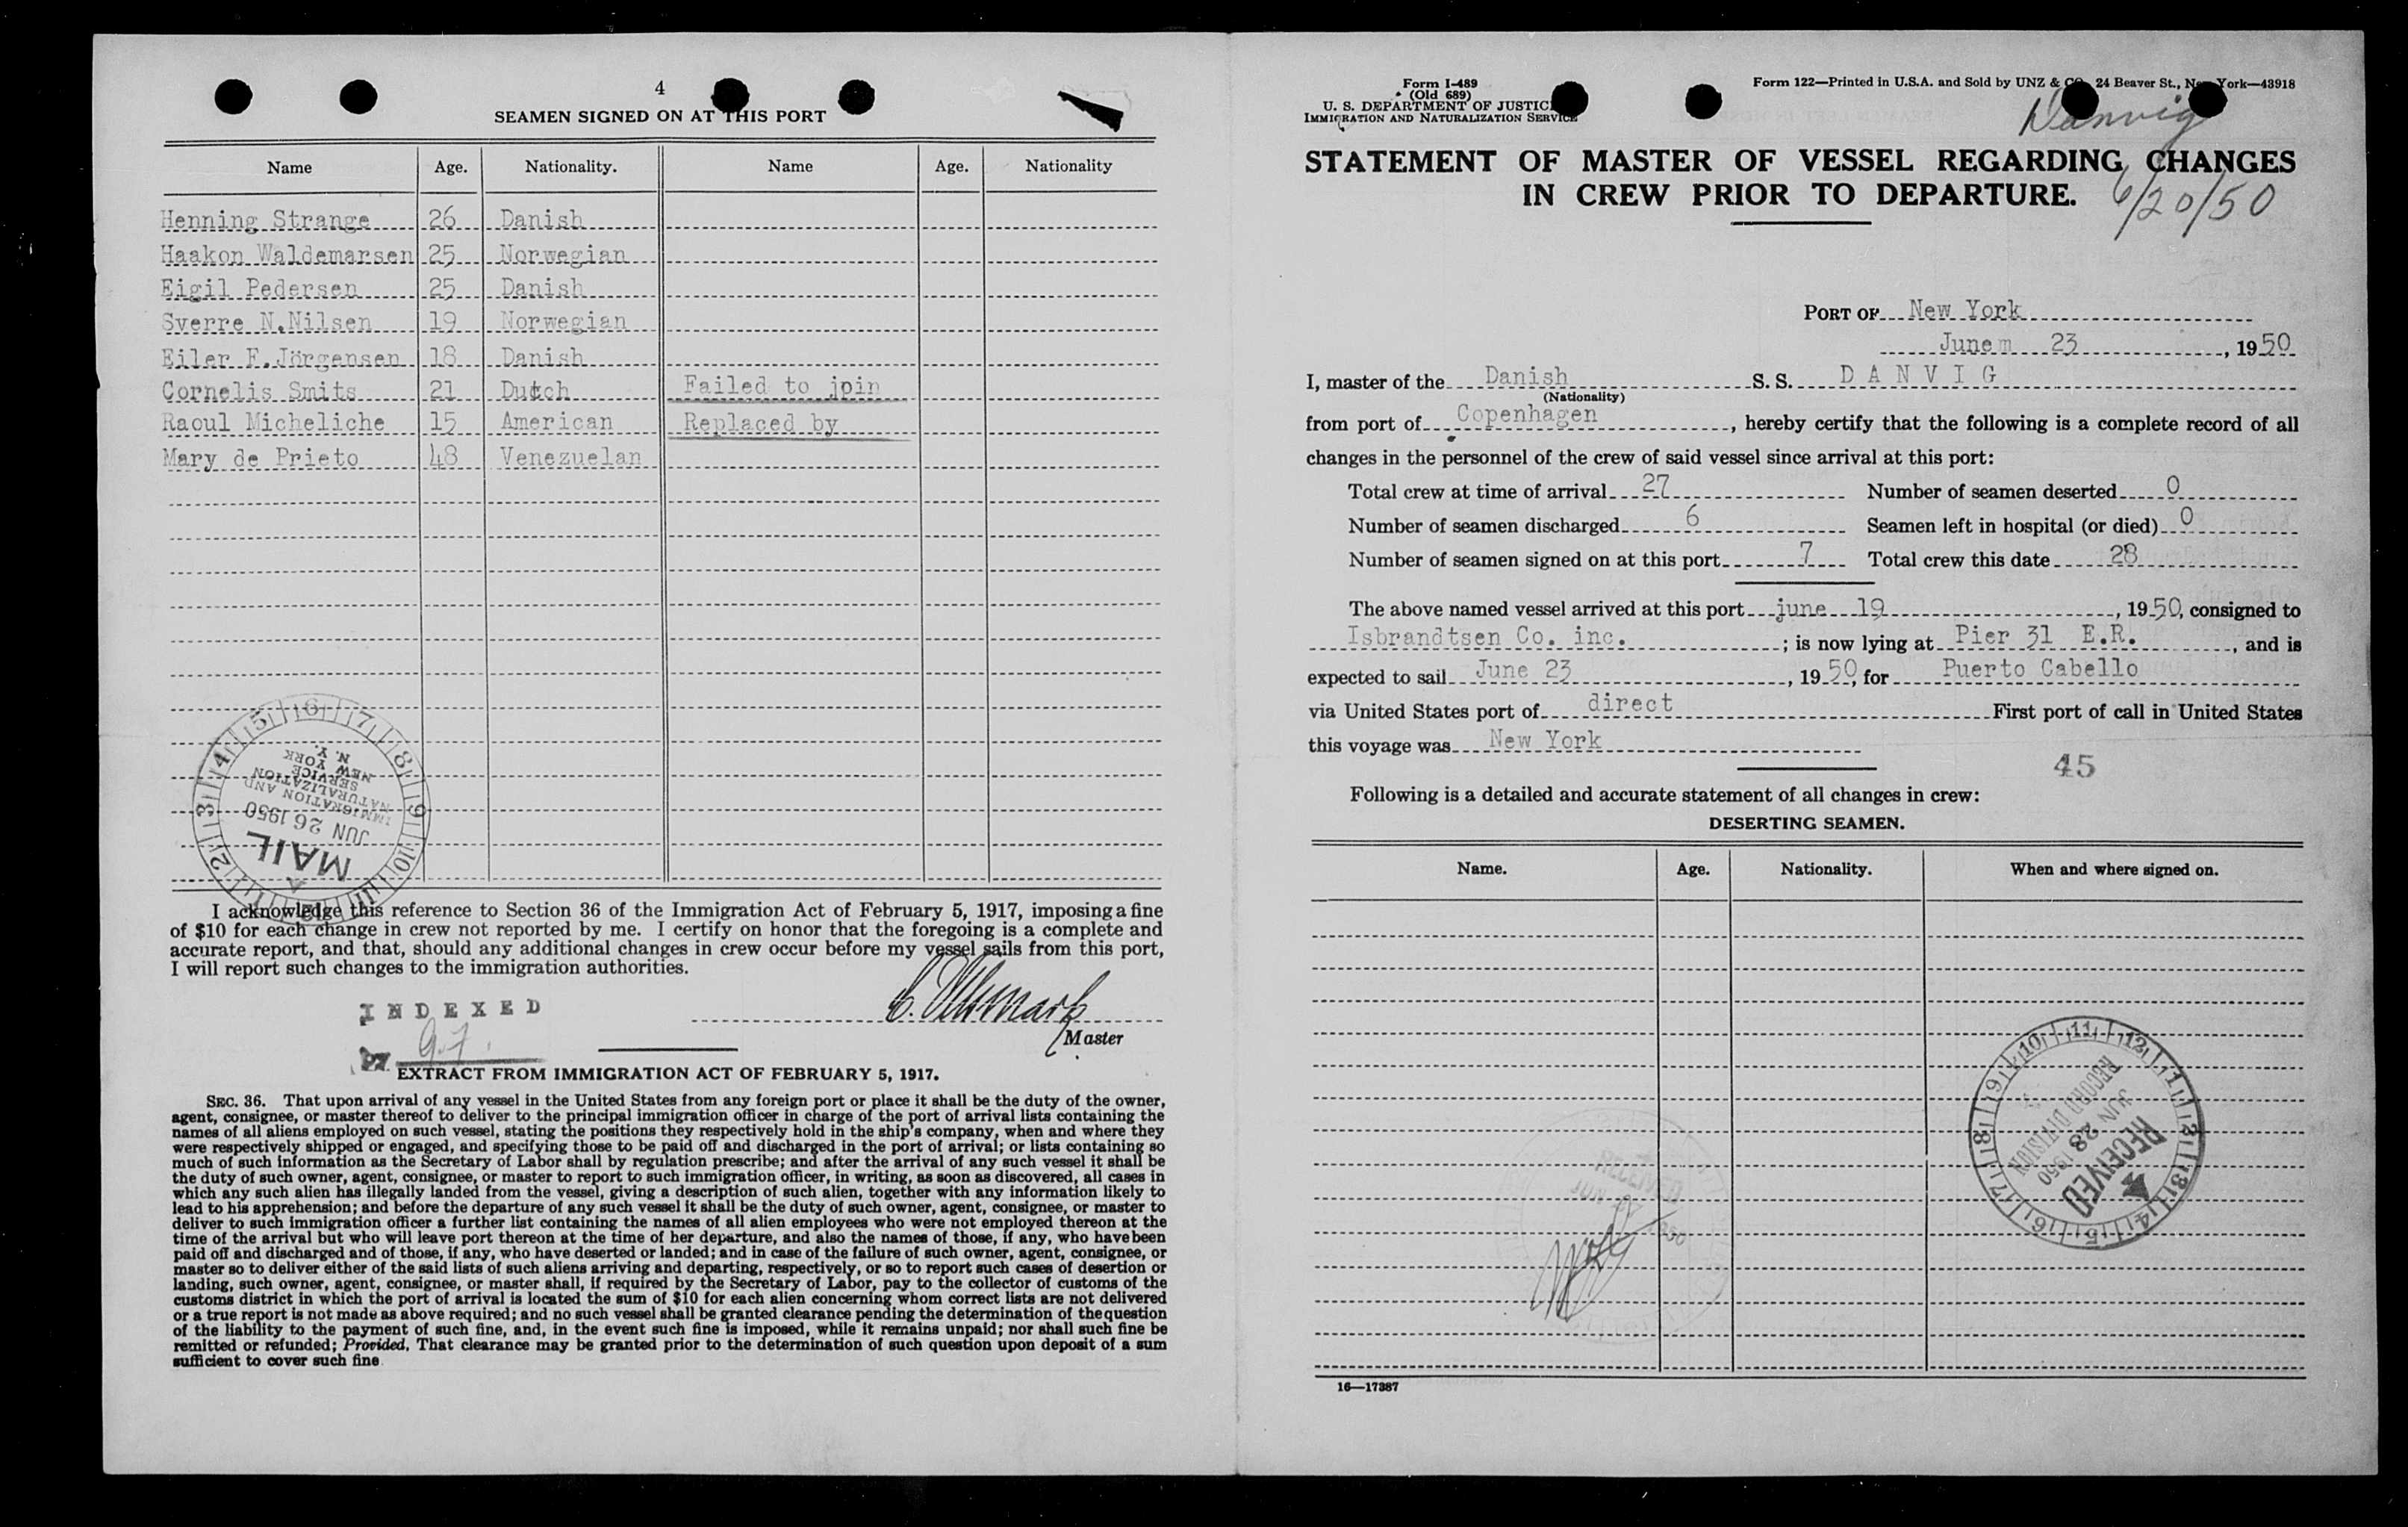 4
SEAMEN SIGNED ON AT THIS PORT
Name Age. Nationality. Name Age. Nationality
Henning Strange 26 Danish
Haakon Waldemarsen 25 Norwegian
Eigil Pedersen 25 Danish
Sverre N.Nilsen 19 Norwegian
Eiler F.Jörgensen 18 Danish
Cornelis Smits 21 Dutch Failed to join
Raoul Micheliche 15 American Replaced by
Mary de Prieto 48 Venezuelan
IMMIGRATION AND
NATURALIZATION
SERVICE
NEW YORK
N. Y.
JUN 26 1950
MAIL
I acknowledge this reference to Section 36 of the Immigration Act of February 5, 1917, imposing a fine
of $10 for each change in crew not reported by me. I certify on honor that the foregoing is a complete and
accurate report, and that, should any additional changes in crew occur before my vessel sails from this port,
I will report such changes to the immigration authorities.
INDEXED
BY
Master
EXTRACT FROM IMMIGRATION ACT OF FEBRUARY 5, 1917.
SEC. 36. That upon arrival of any vessel in the United States from any foreign port or place it shall be the duty of the owner,
agent, consignee, or master thereof to deliver to the principal immigration officer in charge of the port of arrival lists containing the
names of all aliens employed on such vessel, stating the positions they respectively hold in the ship's company, when and where they
were respectively shipped or engaged, and specifying those to be paid off and discharged in the port of arrival; or lists containing so
much of such information as the Secretary of Labor shall by regulation prescribe; and after the arrival of any such vessel it shall be
the duty of such owner, agent, consignee, or master to report to such immigration officer, in writing, as soon as discovered, all cases in
which any such alien has illegally landed from the vessel, giving a description of such alien, together with any information likely to
lead to his apprehension; and before the departure of any such vessel it shall be the duty of such owner, agent, consignee, or master to
deliver to such immigration officer a further list containing the names of all alien employees who were not employed thereon at the
time of the arrival but who will leave port thereon at the time of her departure, and also the names of those, if any, who have been
paid off and discharged and of those, if any, who have deserted or landed; and in case of the failure of such owner, agent, consignee, or
master so to deliver either of the said lists of such aliens arriving and departing, respectively, or so to report such cases of desertion or
landing, such owner, agent, consignee, or master shall, if required by the Secretary of Labor, pay to the collector of customs of the
customs district in which the port of arrival is located the sum of $10 for each alien concerning whom correct lists are not delivered
or a true report is not made as above required; and no such vessel shall be granted clearance pending the determination of the question
of the liability to the payment of such fine, and, in the event such fine is imposed, while it remains unpaid; nor shall such fine be
remitted or refunded; Provided, That clearance may be granted prior to the determination of such question upon deposit of a sum
sufficient to cover such fine
Form I-489
(Old 689)
U. S. DEPARTMENT OF JUSTICE
IMMIGRATION AND NATURALIZATION SERVICE
Form 122—Printed in U.S.A. and Sold by UNZ & CO. 24 Beaver St., New York—43918
Danvig
STATEMENT OF MASTER OF VESSEL REGARDING CHANGES
IN CREW PRIOR TO DEPARTURE.
6/20/50
PORT OF New York
June m 23, 1950
I, master of the Danish S. S. DANVIG
(Nationality)
from port of Copenhagen, hereby certify that the following is a complete record of all
changes in the personnel of the crew of said vessel since arrival at this port:
Total crew at time of arrival 27 Number of seamen deserted 0
Number of seamen discharged 6 Seamen left in hospital (or died) 0
Number of seamen signed on at this port 7 Total crew this date 28
The above named vessel arrived at this port june 19, 1950, consigned to
Isbrandtsen Co. inc. ; is now lying at Pier 31 E.R., and is
expected to sail June 23, 1950, for Puerto Cabello
via United States port of direct First port of call in United States
this voyage was New York
45
Following is a detailed and accurate statement of all changes in crew:
DESERTING SEAMEN.
Name. Age. Nationality. When and where signed on.
RECORD DIVISION
JUN 28 1950
RECEIVED
RECEIVED
16—17387